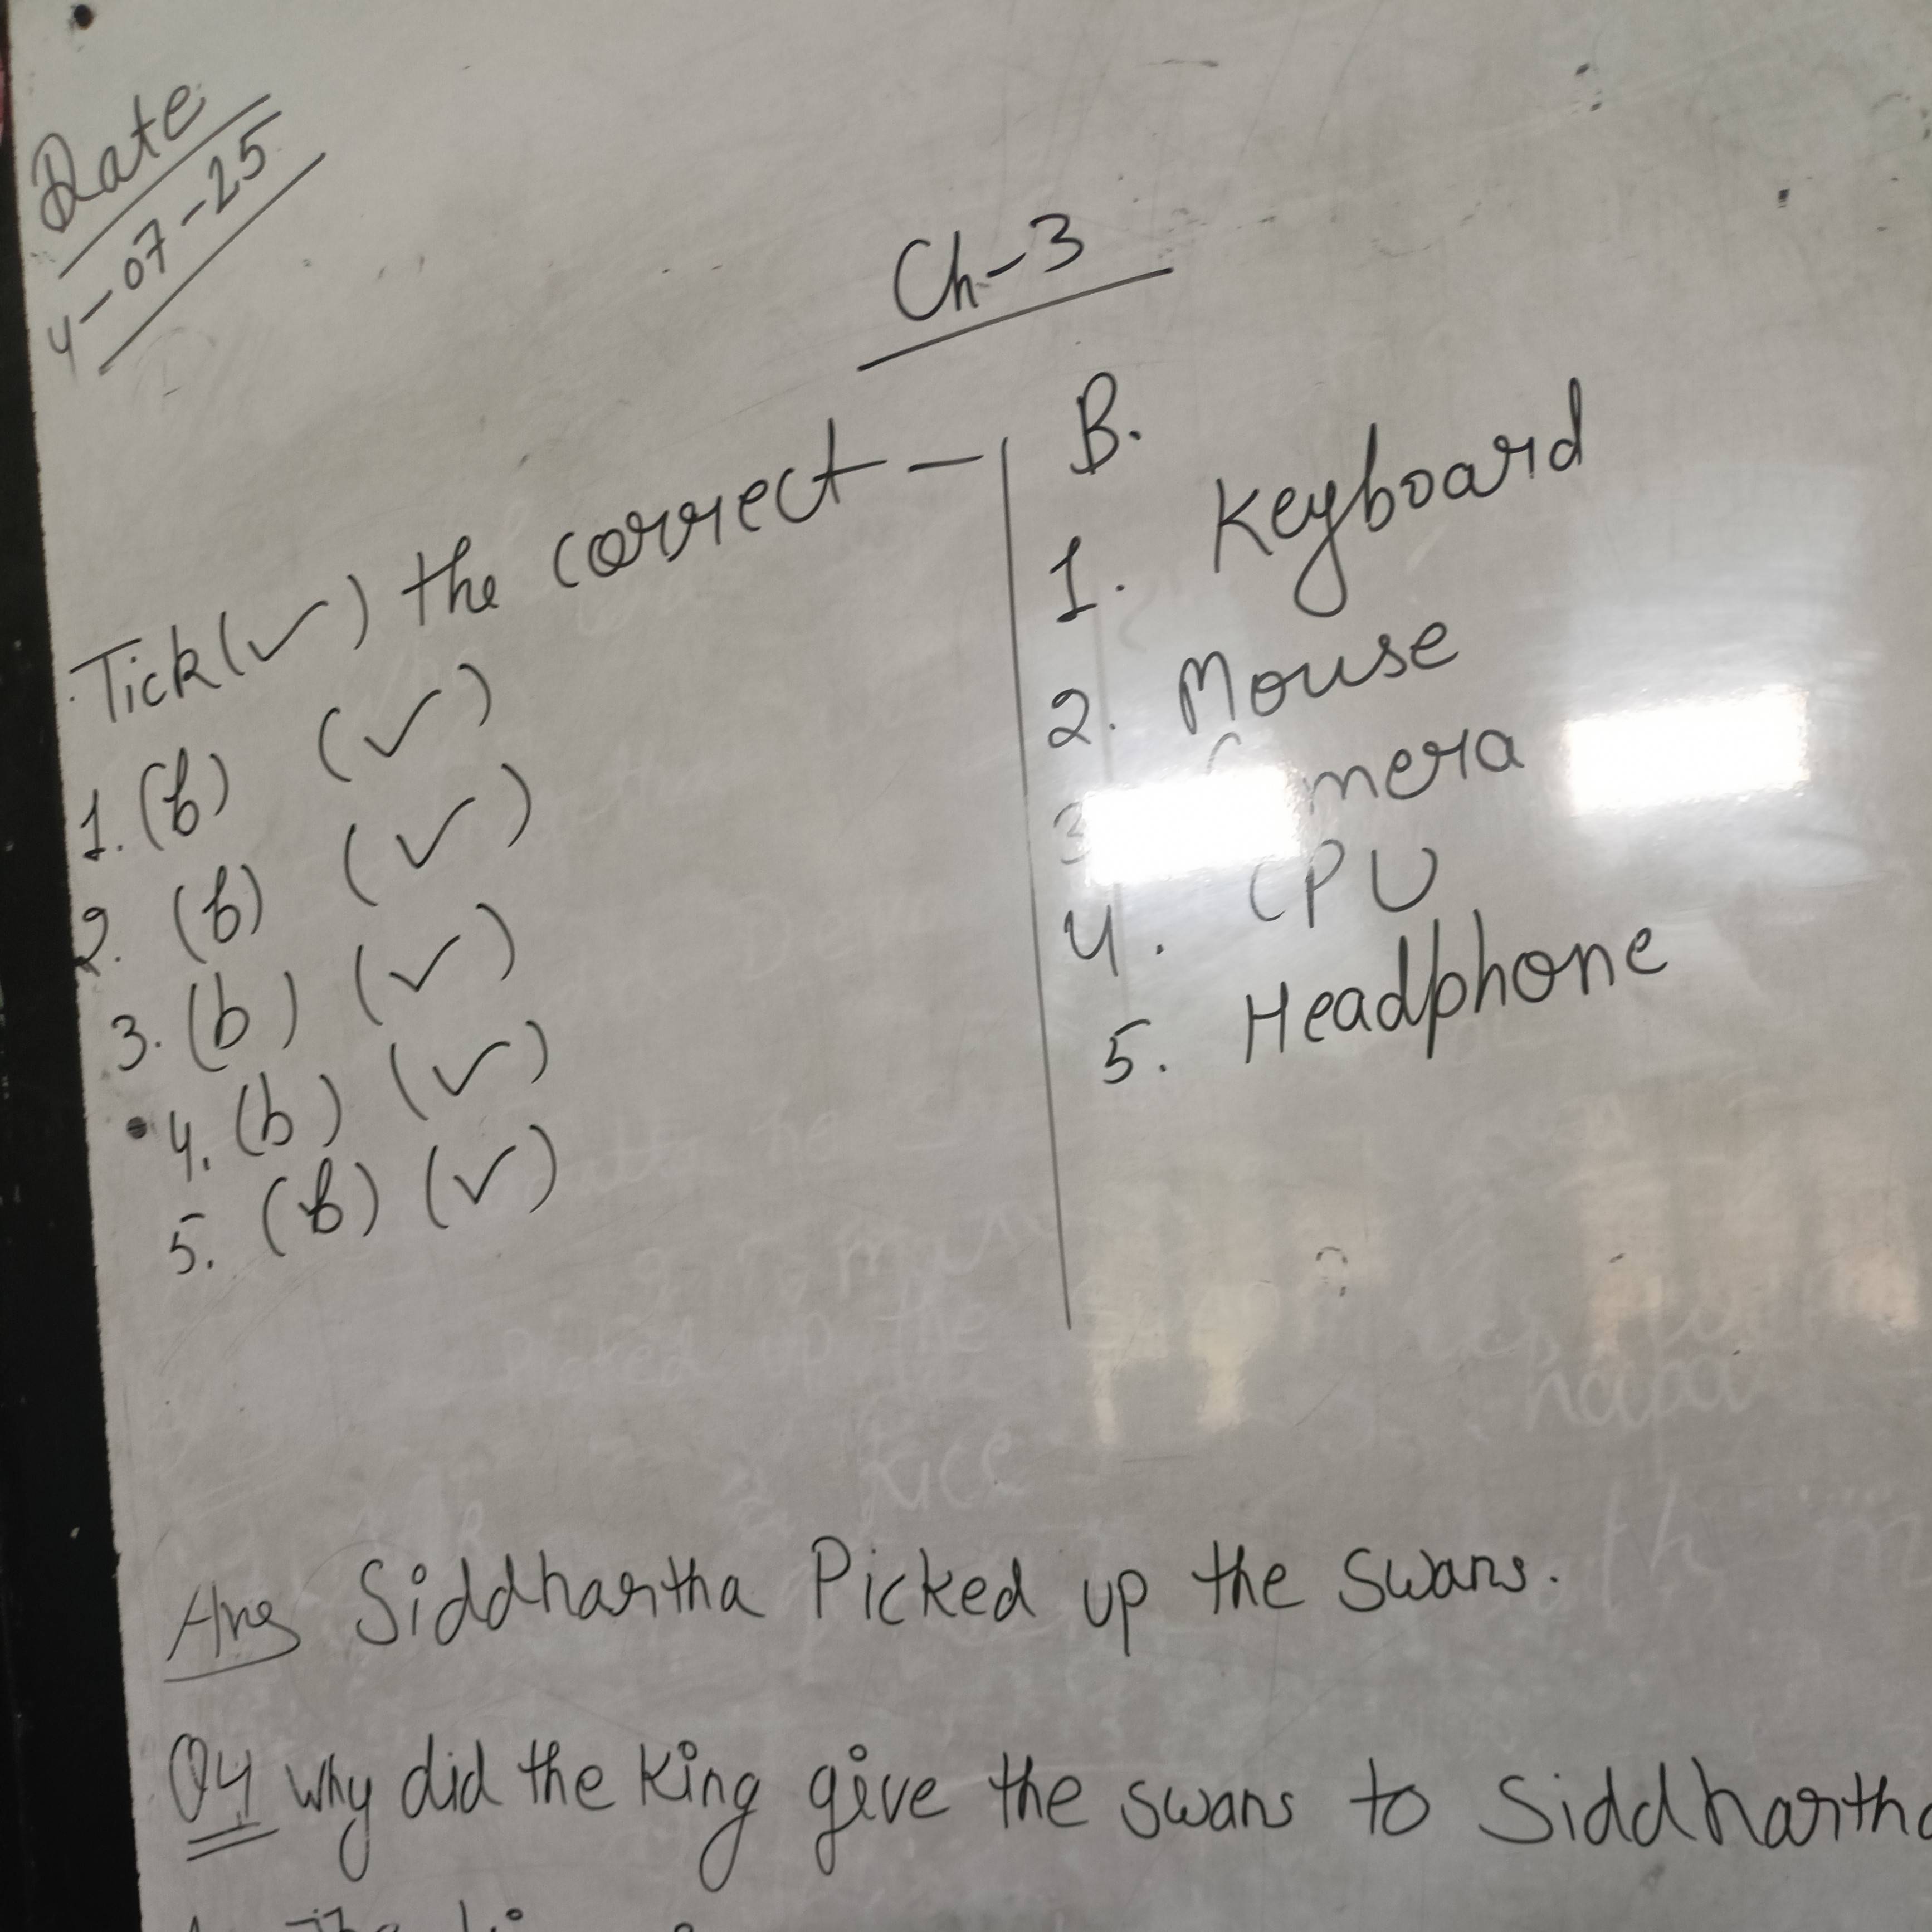 Date
4-07-25
Ch-3
Tick(✓) the correct —
1. (b) (✓)
2. (b) (✓)
3. (b) (✓)
4. (b) (✓)
5. (b) (✓)
B.
1. Keyboard
2. Mouse
3 Camera
4. CPU
5. Headphone
Ans Siddhartha Picked up the swans.
Q4 Why did the King give the swans to Siddhartha